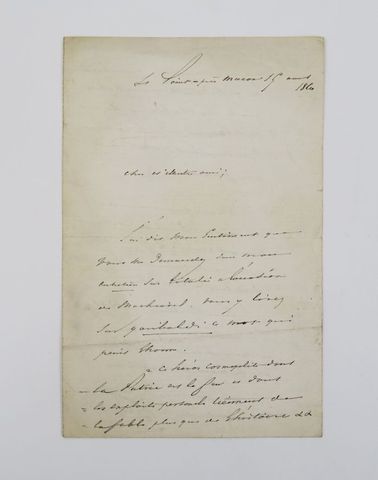 St Point après Macon 15 aout
1860
Cher et illustre ami,
J'ai dit mon sentiment que
vous me demandez dans mon
entretien sur l'Italie à l'occasion
de Machiavel. vous y lirez
sur garibaldi ce mot qui
peint l'homme.
= Ce héros cosmopolite dont
= la Patrie est le feu et dont
= les exploits personnels tiennent de
= la fable plus que de l'histoire &&